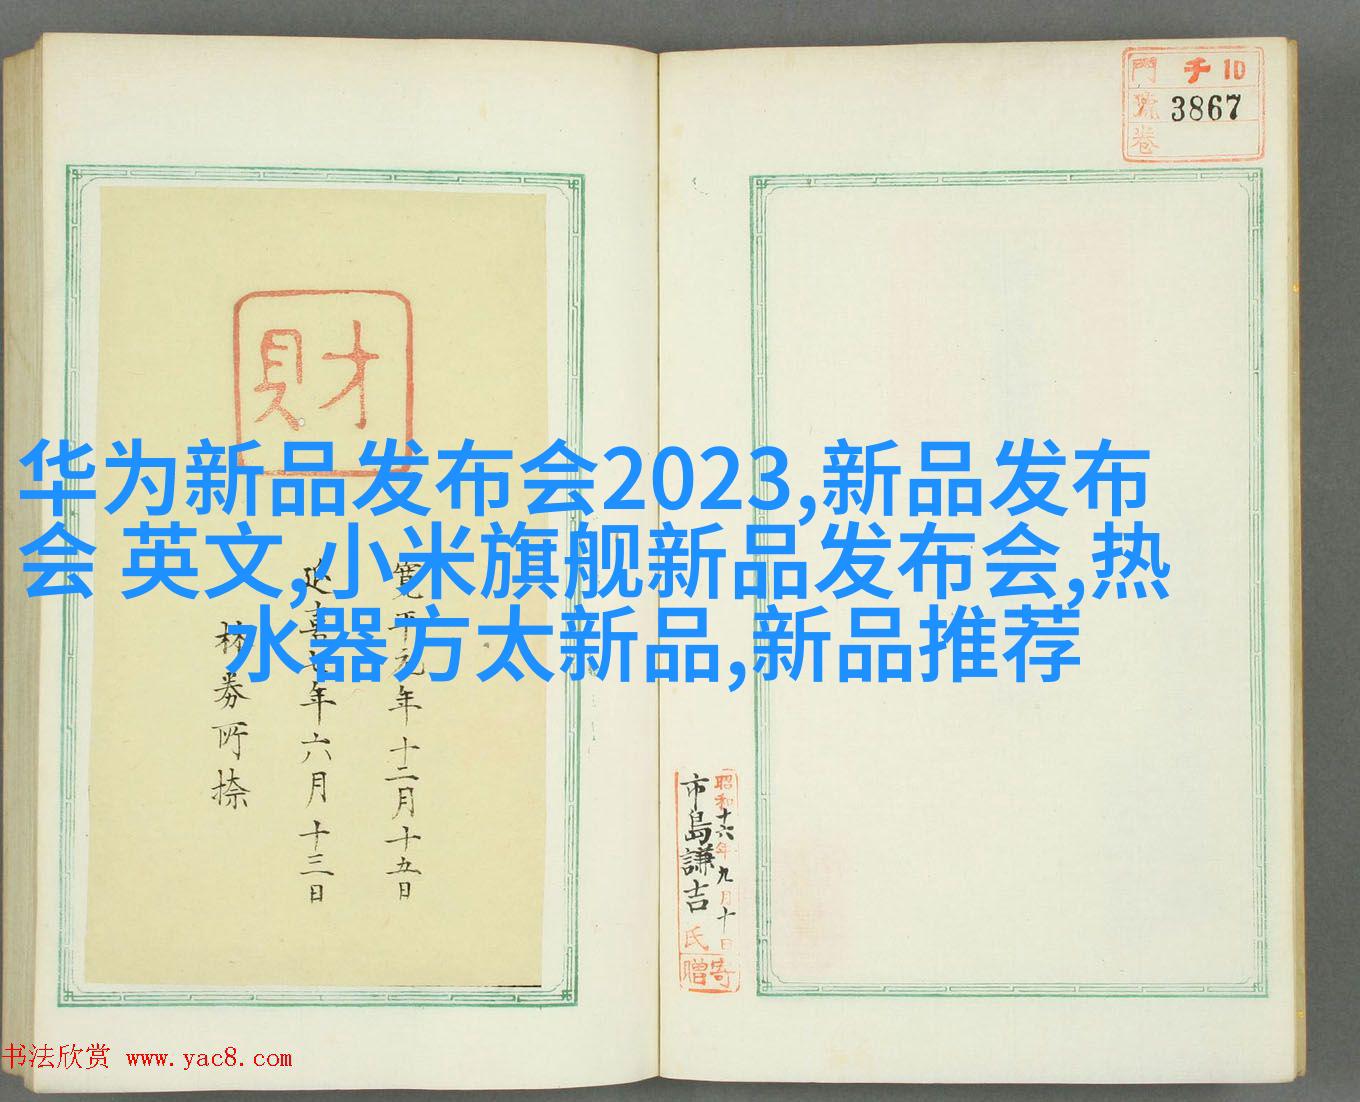 門 チ 10
號 3867
卷
財
华为新品发布会2023,新品发布
会 英文,小米旗舰新品发布会,热
水器方太新品,新品推荐
寛平元年十二月十五日
延喜七年六月十三日
林券所捺
昭和十六年九月十日
市島謙吉氏
寄贈
书法欣赏 www.yac8.com